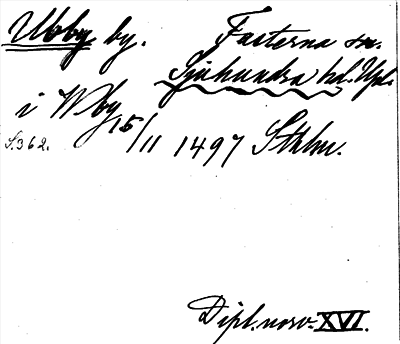 Ubby by. Fasterna sn.
Sjuhundra hd. Upl.
i Wby
S. 362. 15/11 1497 Sthlm.
Dipl. norv. XVI.